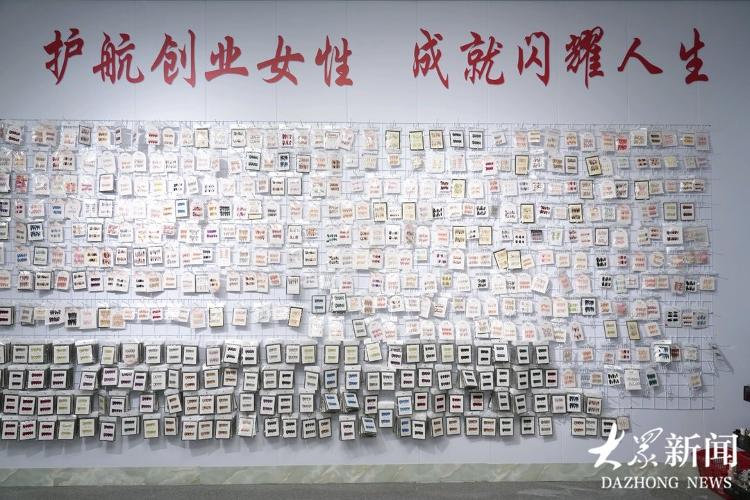 护航创业女性 成就闪耀人生
大众新闻
DAZHONG NEWS